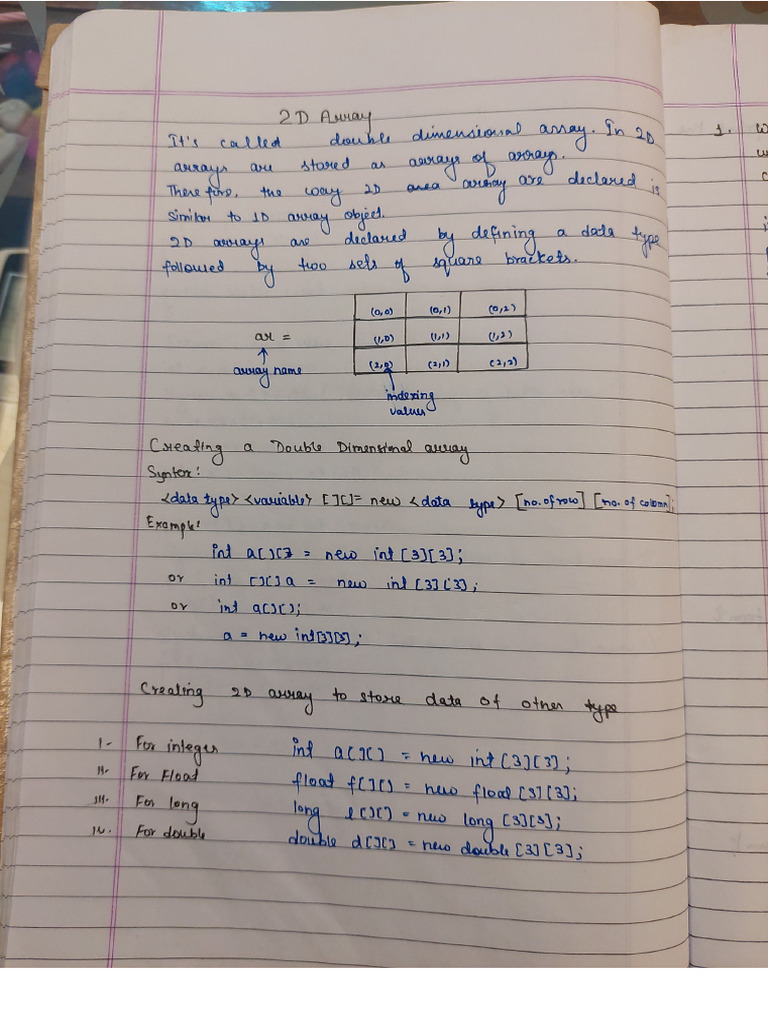 2D Array
It's called double dimensional array. In 2D
arrays are stored as arrays of arrays.
Therefire, the way 2D area array are declared is
similar to 1D array object.
2D arrays are declared by defining a data type
followed by two sets of square brackets.
(0,0) (0,1) (0,2)
ar = (1,0) (1,1) (1,2)
(2,0) (2,1) (2,2)
array name
indexing
values
Creating a Double Dimensional array
Syntex:
<data type> <variable> [][]= new <data type> [no. of row] [no. of column];
Example:
int a[][] = new int [3][3];
or int [][] a = new int [3][3];
or int a[][];
a = new int[3][3];
Creating 2D array to store data of other type
I. For integer int a[][] = new int [3][3];
II. For Float float f[][] = new float [3][3];
III. For long long l[][] = new long [3][3];
IV. For double double d[][] = new double [3][3];
1.